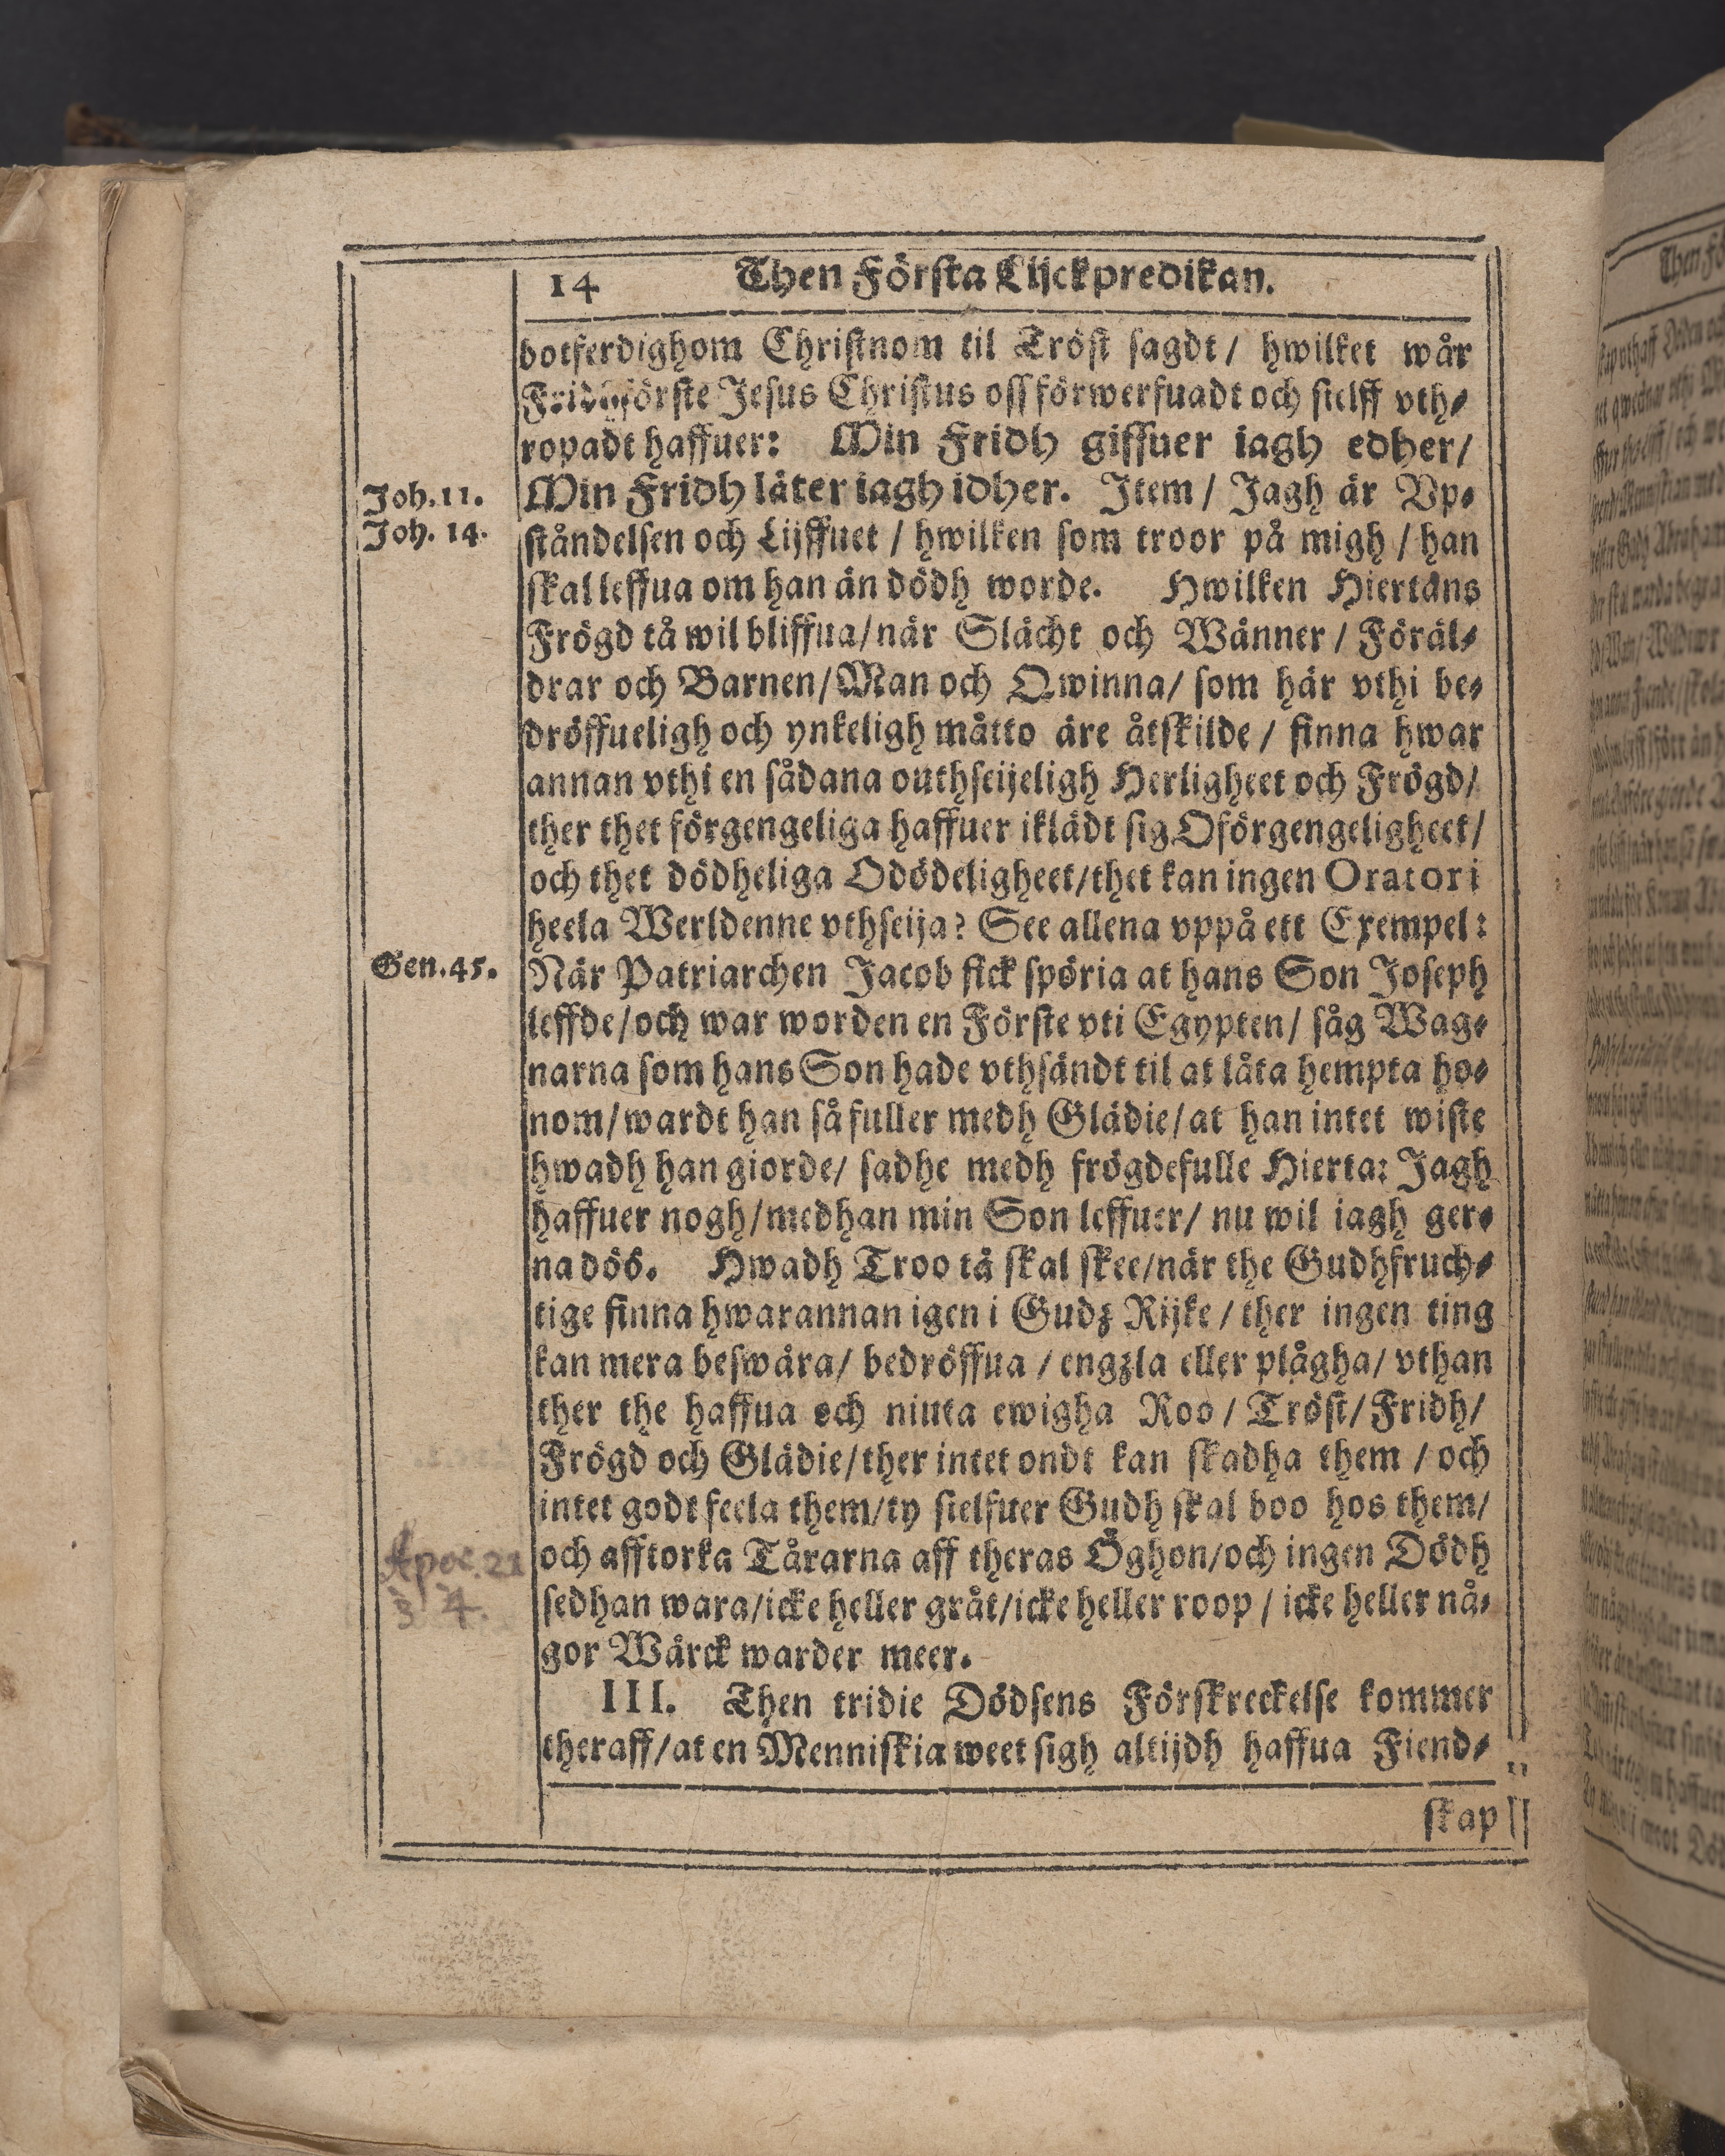 14 Then Första Lijckpredikan.
botferdighom Christnom til Tröst sagdt / hwilket wår
Fridhförste Jesus Christus oss förwerfuadt och sielff vth⸗
ropadt haffuer: Min Fridh giffuer iagh edher/
Joh. 11.
Min Fridh låter iagh idher. Item / Jagh är Vp⸗
Joh. 14.
ståndelsen och Lijffuet / hwilken som troor på migh / han
skal leffua om han än dödh worde. Hwilken Hiertäns
Frögd tå wil bliffua/när Slächt och Wänner / Föräl⸗
drar och Barnen/Man och Qwinna/ som här vthi be⸗
dröffueligh och ynkeligh måtto äre åtskilde / finna hwar
annan vthi en sådana outhseijeligh Herligheet och Frögd/
ther thet förgengeliga haffuer iklädt sig Oförgengeligheet/
och thet dödheliga Odödeligheet/thet kan ingen Orator i
heela Werldenne vthseija? See allena vppå ett Exempel:
Gen. 45.
När Patriarchen Jacob fick spöria at hans Son Joseph
leffde/och war worden en Förste vti Egypten/ såg Wag⸗
narna som hans Son hade vthsändt til at låta hempta ho⸗
nom/wardt han så fuller medh Glädie/at han intet wiste
hwadh han giorde/ sadhe medh frögdefulle Hierta: Jagh
haffuer nogh/medhan min Son leffuer/ nu wil iagh ger⸗
na döö. Hwadh Troo tå skal skee/när the Gudhfruch⸗
tige finna hwarannan igen i Gudz Rijke / ther ingen ting
kan mera beswära/ bedröffua / engzla eller plågha/ vthan
ther the haffua och niuta ewigha Roo / Tröst/Fridh/
Frögd och Glädie/ther intet ondt kan skadha them / och
intet godt feela them/ty sielfuer Gudh skal boo hos them/
Apoc. 21
och afftorka Tårarna aff theras Öghon/och ingen Dödh
3 4.
sedhan wara/icke heller gråt/icke heller roop / icke heller nå⸗
gor Wärck warder meer.
III. Then tridie Dödsens Förskreckelse kommer
theraff/at en Menniskia weet sigh altijdh haffua Fiend⸗
skap